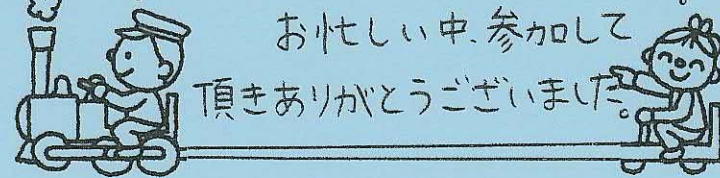 お忙しい中、参加して
頂きありがとうございました。